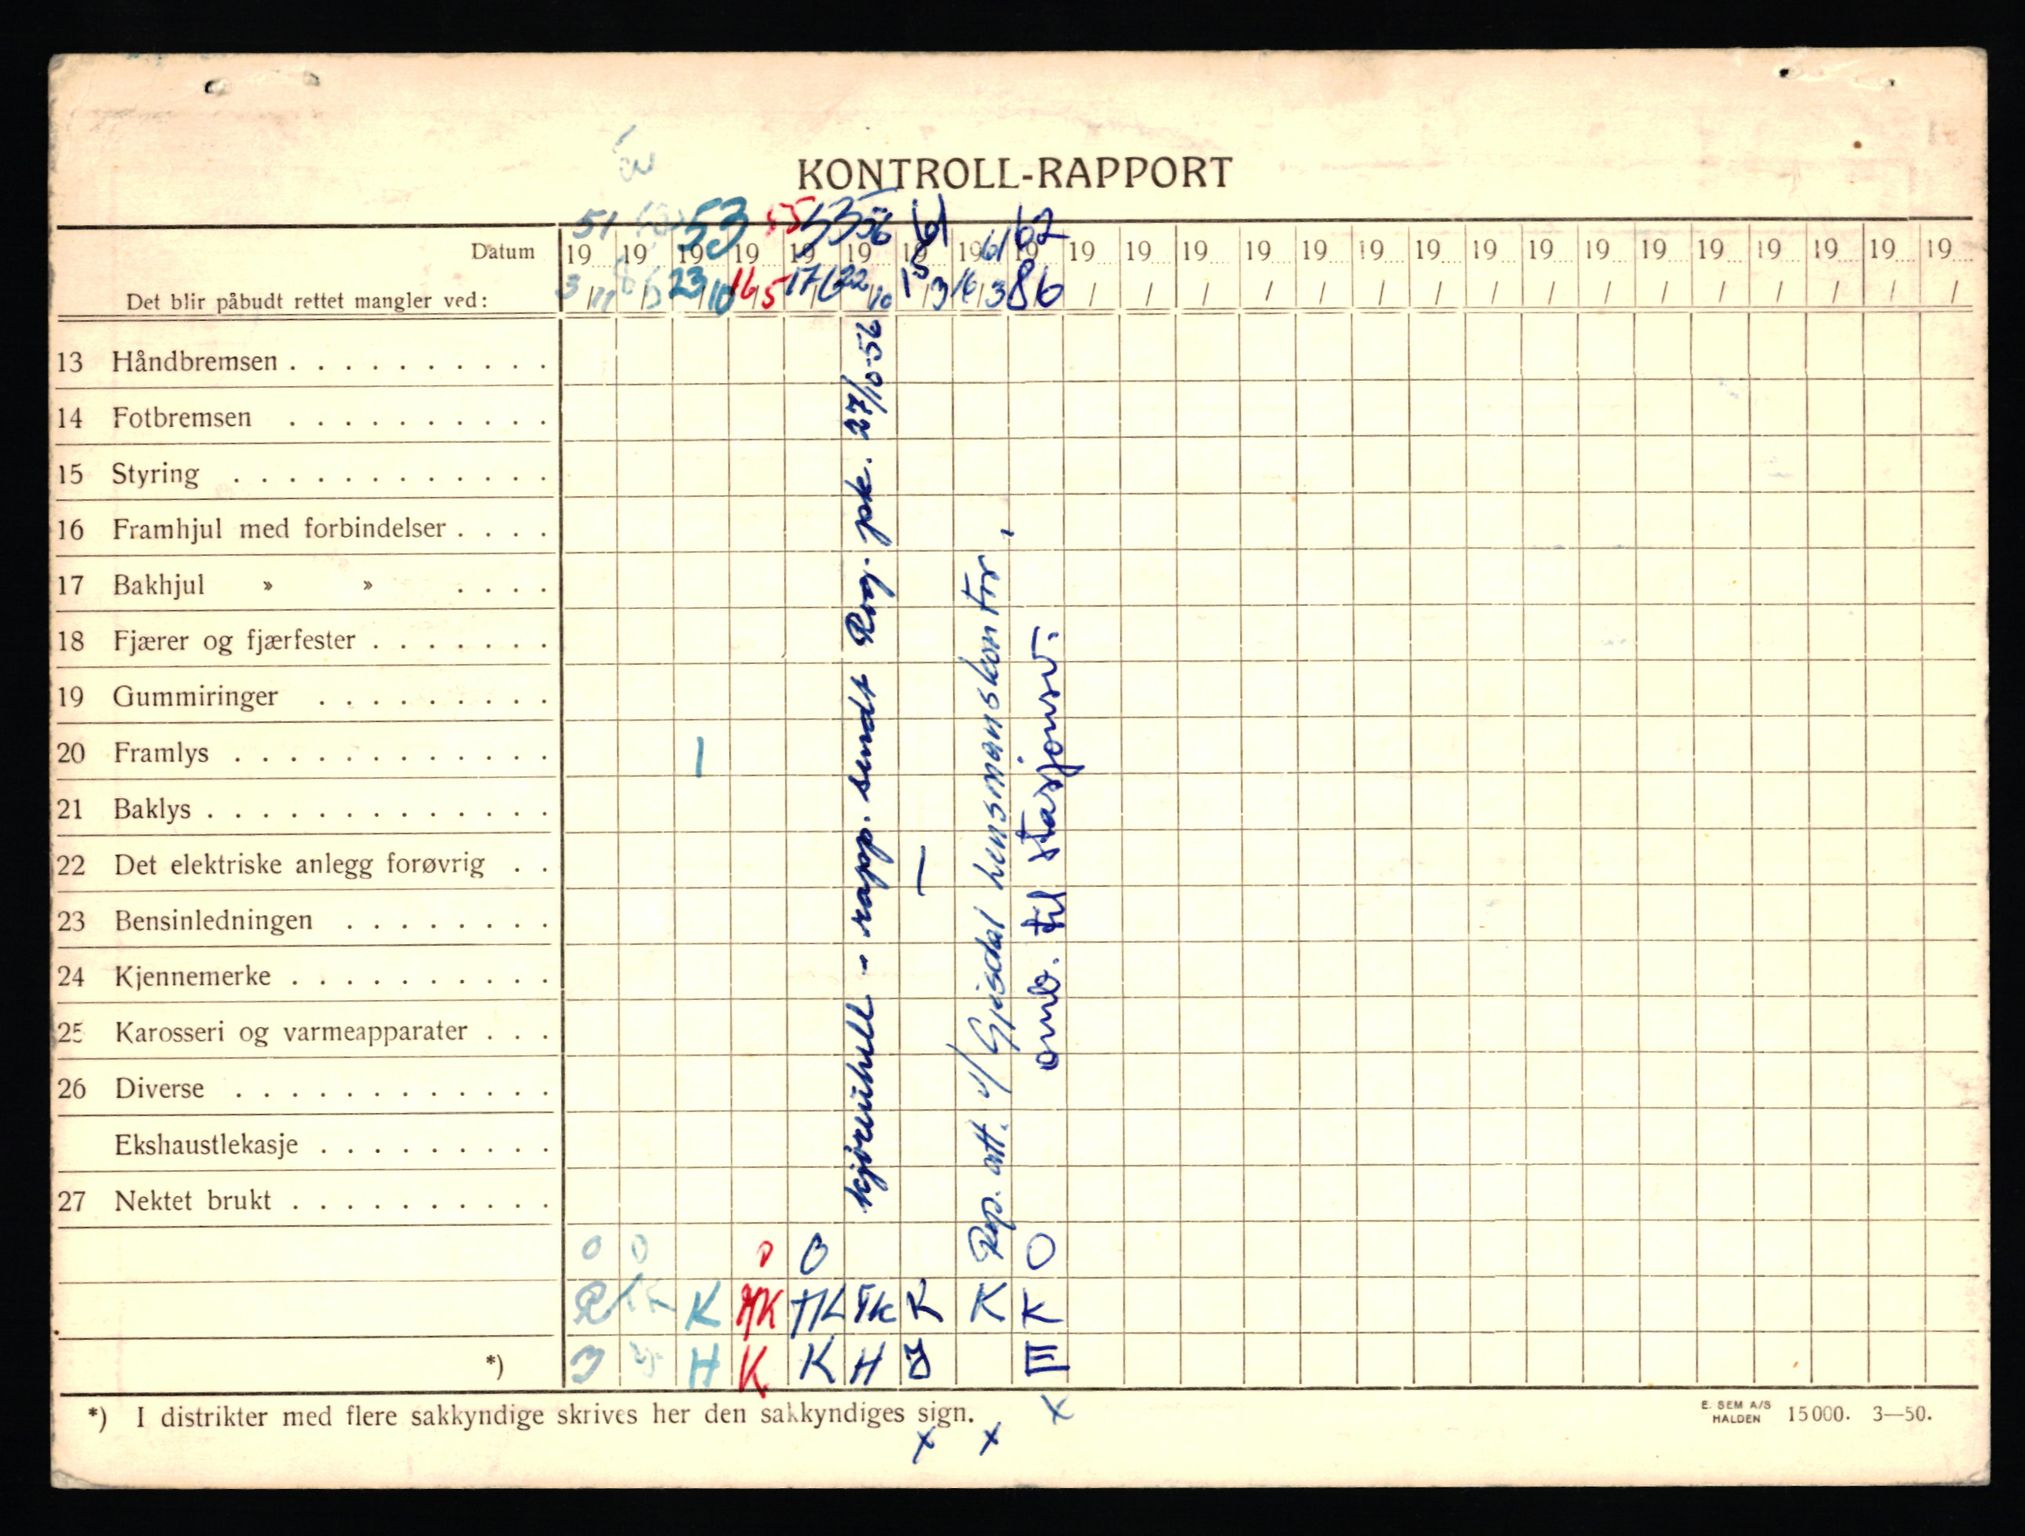 KONTROLL-RAPPORT
51 53 55 55 56 61 61 62
Datum 19 19 19 19 19 19 19 19 19 19 19 19 19 19 19 19 19 19 19 19 19 19 19 19 19
Det blir påbudt rettet mangler ved: 3/11 23/10 16/5 17/6 22/10 15/3 16/3 8/6 / / / / / / / / / / / / / / / /
13 Håndbremsen
14 Fotbremsen
15 Styring
16 Framhjul med forbindelser
17 Bakhjul » »
18 Fjærer og fjærfester
19 Gummiringer
20 Framlys |
21 Baklys
22 Det elektriske anlegg forøvrig |
23 Bensinledningen
24 Kjennemerke
25 Karosseri og varmeapparater
26 Diverse
Ekshaustlekasje
27 Nektet brukt
kjøreuhell - rapp. sendt Rog. pk. 27/10-56
Rep. att. v/ Gjesdal hensmanskontor,
omb. til stasjonsv.
0 0 0 0 0
R K HK HK K K K
H K K H E
*)
*) I distrikter med flere sakkyndige skrives her den sakkyndiges sign.
x x x
E. SEM A/S
HALDEN 15000. 3—50.